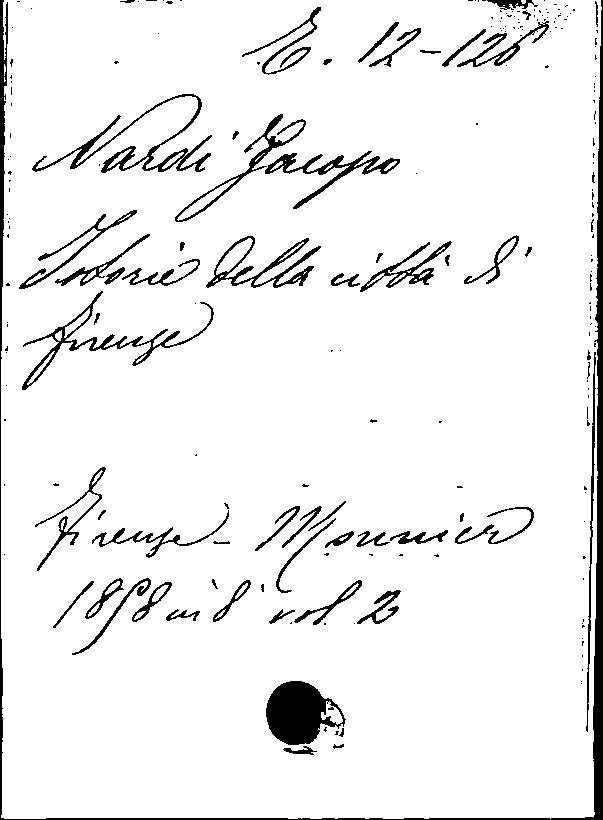 E. 12-126
Nardi Jacopo
Istorie della città di
Firenze
Firenze - Monnier
1858 in 8° vol. 2